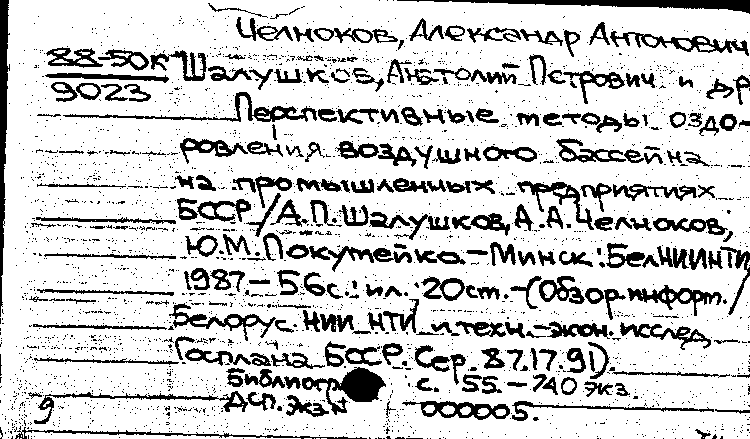 Челноков, Александр Антонович
88-50к
9023
Шалушков, Анатолий Петрович и др
Перспективные методы оздо-
ровления воздушного бассейна
на промышленных предприятиях
БССР / А.П. Шалушков, А.А. Челноков,
Ю.М. Покумейко. - Минск: БелНИИНТИ
1987. - 56 с.: ил. 20 ст. - (Обзор. информ. /
Белорус. НИИ НТИ и техн.-экон. исслед.
Госплана БССР. Сер. 87.17.91).
Библиогр с. 55. - 740 экз.
ДСП. Экз N 000005.
9